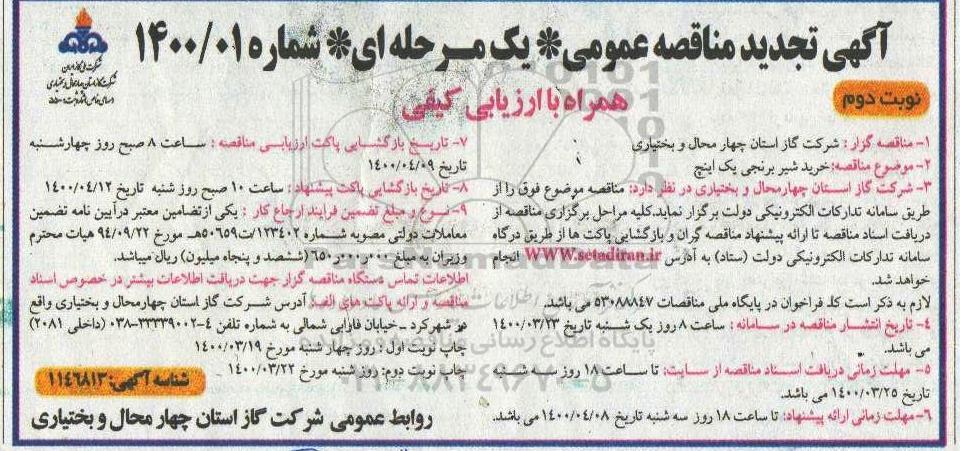 آگهی تجدید مناقصه عمومی* یک مرحله ای* شماره ۱۴۰۰/۰۱
شرکت ملی گاز ایران
شرکت گاز استان چهارمحال و بختیاری
همراه با ارزیابی کیفی
نوبت دوم
۱- مناقصه گزار : شرکت گاز استان چهار محال و بختیاری
۲- موضوع مناقصه: خرید شیر برنجی یک اینچ
۳- شرکت گاز استان چهارمحال و بختیاری در نظر دارد: مناقصه موضوع فوق را از
طریق سامانه تدارکات الکترونیکی دولت برگزار نماید. کلیه مراحل برگزاری مناقصه از
دریافت اسناد مناقصه تا ارائه پیشنهاد مناقصه گران و بازگشایی پاکت ها از طریق درگاه
سامانه تدارکات الکترونیکی دولت (ستاد) به آدرس www.setadiran.ir انجام
خواهد شد.
لازم به ذکر است کد فراخوان در پایگاه ملی مناقصات ۵۳۰۸۸۸۴۷ می باشد.
۴- تاریخ انتشار مناقصه در سامانه : ساعت ۸ روز یک شنبه تاریخ ۱۴۰۰/۰۳/۲۳
می باشد.
۵- مهلت زمانی دریافت اسناد مناقصه از سایت: تا ساعت ۱۸ روز سه شنبه
تاریخ ۱۴۰۰/۰۳/۲۵ می باشد.
۶-مهلت زمانی ارائه پیشنهاد: تا ساعت ۱۸ روز سه شنبه تاریخ ۱۴۰۰/۰۴/۰۸ می باشد.
۷- تاریخ بازگشایی پاکت ارزیابی مناقصه : ساعت ۸ صبح روز چهارشنبه
تاریخ ۱۴۰۰/۰۴/۰۹
۸- تاریخ بازگشایی پاکت پیشنهاد : ساعت ۱۰ صبح روز شنبه تاریخ ۱۴۰۰/۰۴/۱۲
۹- نوع و مبلغ تضمین فرایند ارجاع کار : یکی ازتضامین معتبر درآیین نامه تضمین
معاملات دولتی مصوبه شماره ۱۲۳۴۰۲/ت۵۰۶۵۹هـ مورخ ۹۴/۰۹/۲۲ هیات محترم
وزیران به مبلغ ۶۵۰٫۰۰۰٫۰۰۰ (ششصد و پنجاه میلیون) ریال میباشد.
اطلاعات تماس دستگاه مناقصه گزار جهت دریافت اطلاعات بیشتر در خصوص اسناد
مناقصه و ارائه پاکت های الف: آدرس شرکت گاز استان چهارمحال و بختیاری واقع
در شهرکرد – خیابان فارابی شمالی به شماره تلفن ۴-۳۳۳۳۹۰۰۲-۰۳۸ (داخلی ۲۰۸۱)
چاپ نوبت اول : روز چهار شنبه مورخ ۱۴۰۰/۰۳/۱۹
چاپ نوبت دوم: روز شنبه مورخ ۱۴۰۰/۰۳/۲۲
شناسه آگهی: ۱۱۴۶۸۱۳
روابط عمومی شرکت گاز استان چهار محال و بختیاری
پایگاه اطلاع رسانی مناقصه و مزایده
۰۲۱-۸۸۳۴۹۶۷۰-۵